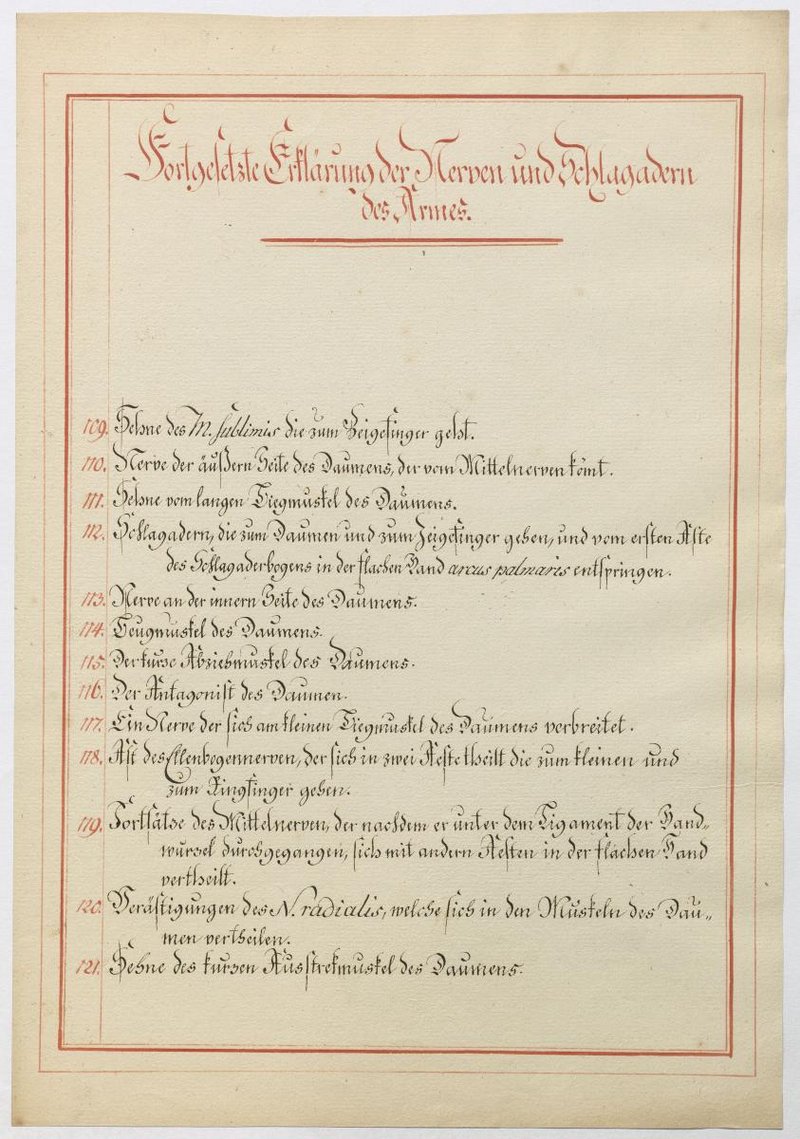 Fortgesetzte Erklärung der Nerven und Schlagadern
des Armes.
109. Sehne des M. sublimis die zum Zeigefinger geht.
110. Nerve der äußern Seite des Daumens, der vom Mittelnerven kömt.
111. Sehne vom langen Biegmuskel des Daumens.
112. Schlagadern, die zum Daumen und zum Zeigefinger gehen, und vom ersten Aste
des Schlagaderbogens in der flachen Hand arcus palmaris entspringen.
113. Nerve an der innern Seite des Daumens.
114. Beugmuskel des Daumens.
115. Der kurze Abziehmuskel des Daumens.
116. Der Antagonist des Daumen.
117. Ein Nerve der sich am kleinen Biegmuskel des Daumens verbreitet.
118. Ast des Ellenbogennerven, der sich in zwei Aeste theilt die zum kleinen und
zum Ringfinger gehen.
119. Fortsätze des Mittelnerven, der nachdem er unter dem Ligament der Hand„
wurzel durchgegangen, sich mit andern Aesten in der flachen Hand
vertheilt.
120. Verästigungen des N. radialis, welche sich in den Muskeln des Dau„
men vertheilen.
121. Sehne des kurzen Ausstrekmuskel des Daumens.